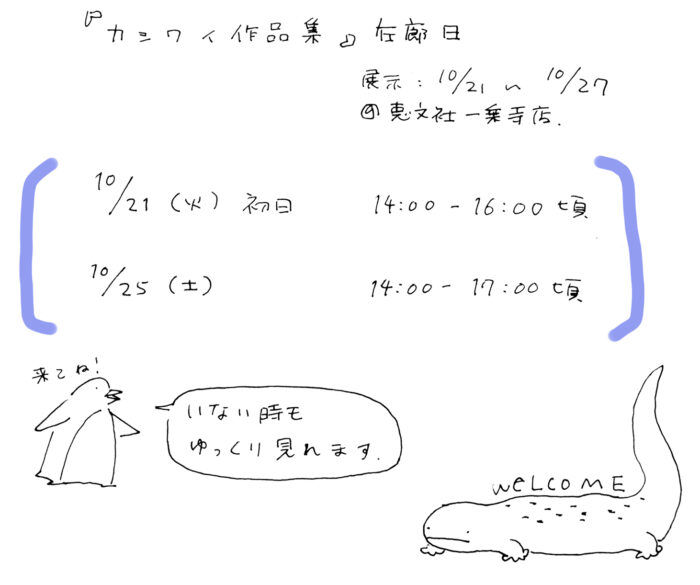 『カシワイ作品集』在廊日
展示：10/21〜10/27
@恵文社一乗寺店.
10/21（火）初日 14:00-16:00頃
10/25（土） 14:00-17:00頃
来てね！
いない時も
ゆっくり見れます.
WELCOME